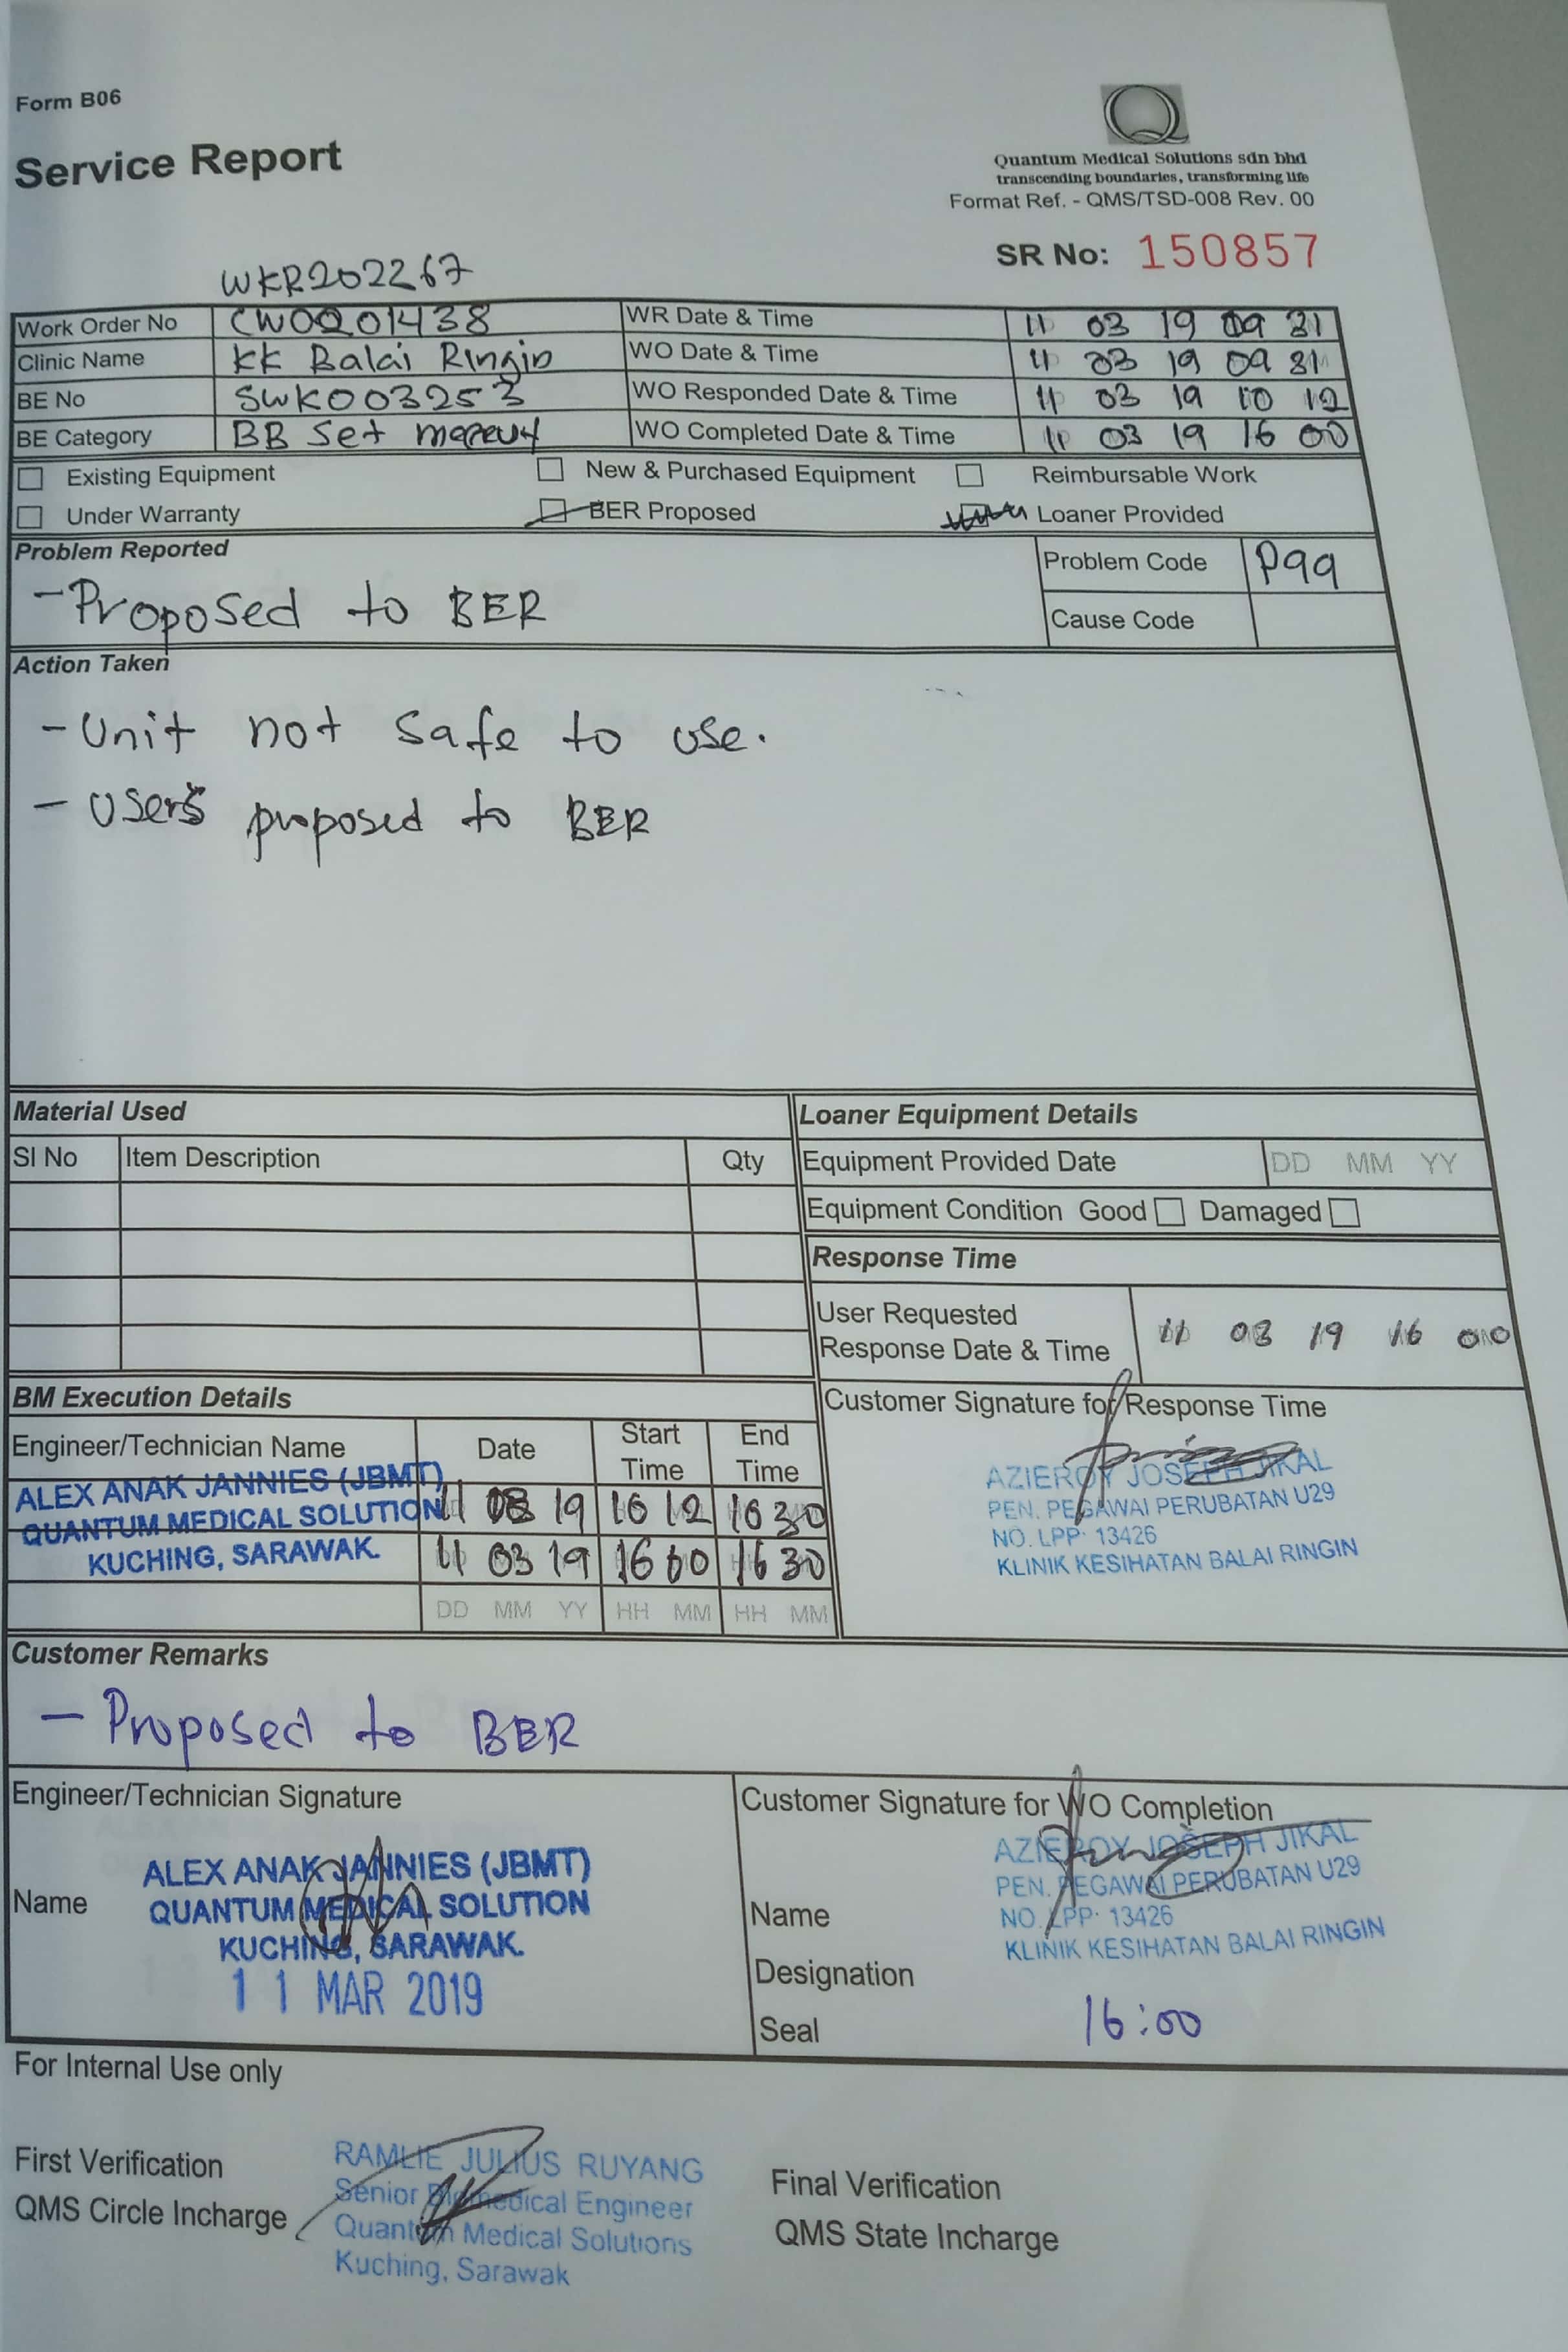 Form B06
Service Report
Quantum Medical Solutions sdn bhd
transcending boundaries, transforming life
Format Ref. - QMS/TSD-008 Rev. 00
SR No: 150857
WKR202267
Work Order No CWOQ01438 WR Date & Time 11 03 19 09 31
Clinic Name KK Balai Ringin WO Date & Time 11 03 19 09 31
BE No SWK003253 WO Responded Date & Time 11 03 19 10 12
BE Category BB Set WO Completed Date & Time 11 03 19 16 00
Existing Equipment New & Purchased Equipment Reimbursable Work
Under Warranty BER Proposed Loaner Provided
Problem Reported
Problem Code P99
- Proposed to BER
Cause Code
Action Taken
- Unit not safe to use.
- Users proposed to BER
Material Used Loaner Equipment Details
Sl No Item Description Qty Equipment Provided Date DD MM YY
Equipment Condition Good Damaged
Response Time
User Requested
Response Date & Time 11 03 19 16 00
BM Execution Details Customer Signature for Response Time
Engineer/Technician Name Date Start Time End Time
ALEX ANAK JANNIES (JBMT)
QUANTUM MEDICAL SOLUTION
KUCHING, SARAWAK.
11 03 19 10 12 16 30
11 03 19 16 00 16 30
DD MM YY HH MM HH MM
AZIEROY JOSEPH JIKAL
PEN. PEGAWAI PERUBATAN U29
NO. LPP: 13426
KLINIK KESIHATAN BALAI RINGIN
Customer Remarks
- Proposed to BER
Engineer/Technician Signature
Name
ALEX ANAK JANNIES (JBMT)
QUANTUM MEDICAL SOLUTION
KUCHING, SARAWAK.
11 MAR 2019
Customer Signature for WO Completion
AZIEROY JOSEPH JIKAL
PEN. PEGAWAI PERUBATAN U29
NO. LPP: 13426
KLINIK KESIHATAN BALAI RINGIN
Name
Designation
Seal 16:00
For Internal Use only
First Verification
QMS Circle Incharge
RAMLIE JULIUS RUYANG
Senior Biomedical Engineer
Quantum Medical Solutions
Kuching, Sarawak
Final Verification
QMS State Incharge